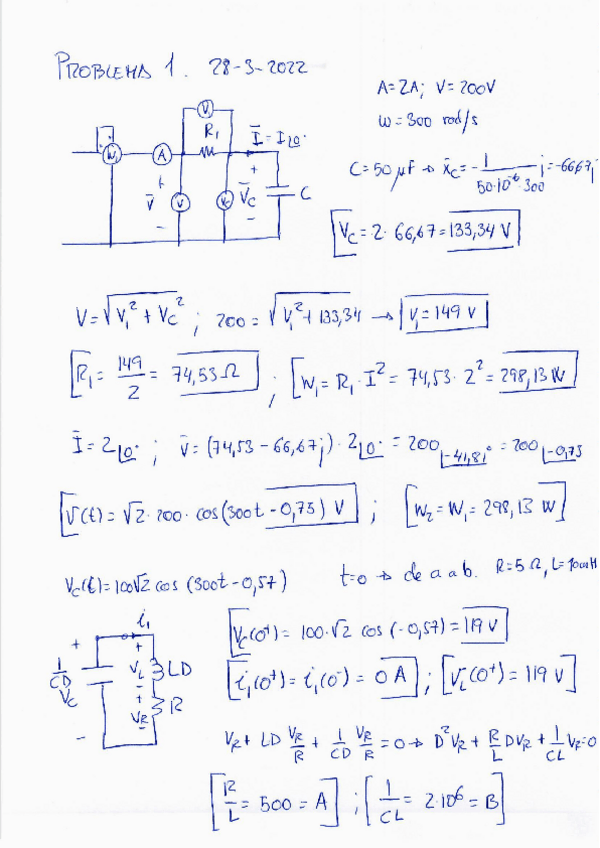 PROBLEMA 1. 28-3-2022
A=2A; V=200V
ω=300 rad/s
V1
R1
Ī=I∠0°
W1 A
+ +
V̄ V VC V̄C C
- -
C=50μF → X̄C=-1/(50·10⁻⁶·300) j=-66,67j
VC=2·66,67=133,34 V
V=√(V1²+VC²); 200=√(V1²+133,34) → V1=149 V
R1=149/2=74,53Ω; W1=R1·I²=74,53·2²=298,13W
Ī=2∠0°; V̄=(74,53-66,67j)·2∠0°=200∠-41,81°=200∠-0,73
V(t)=√2·200·cos(300t-0,73) V; W2=W1=298,13 W
VC(t)=100√2 cos(300t-0,57) t=0 → de a a b. R=5Ω, L=10mH
i1
+ +
1/CD VL LD
VC - +
VR R
- -
VC(0⁺)=100·√2 cos(-0,57)=119 V
i1(0⁺)=i1(0⁻)=0 A; VL(0⁺)=119 V
VR+LD VR/R+1/CD VR/R=0 → D²VR+R/L DVR+1/CL VR=0
R/L=500=A; 1/CL=2·10⁶=B